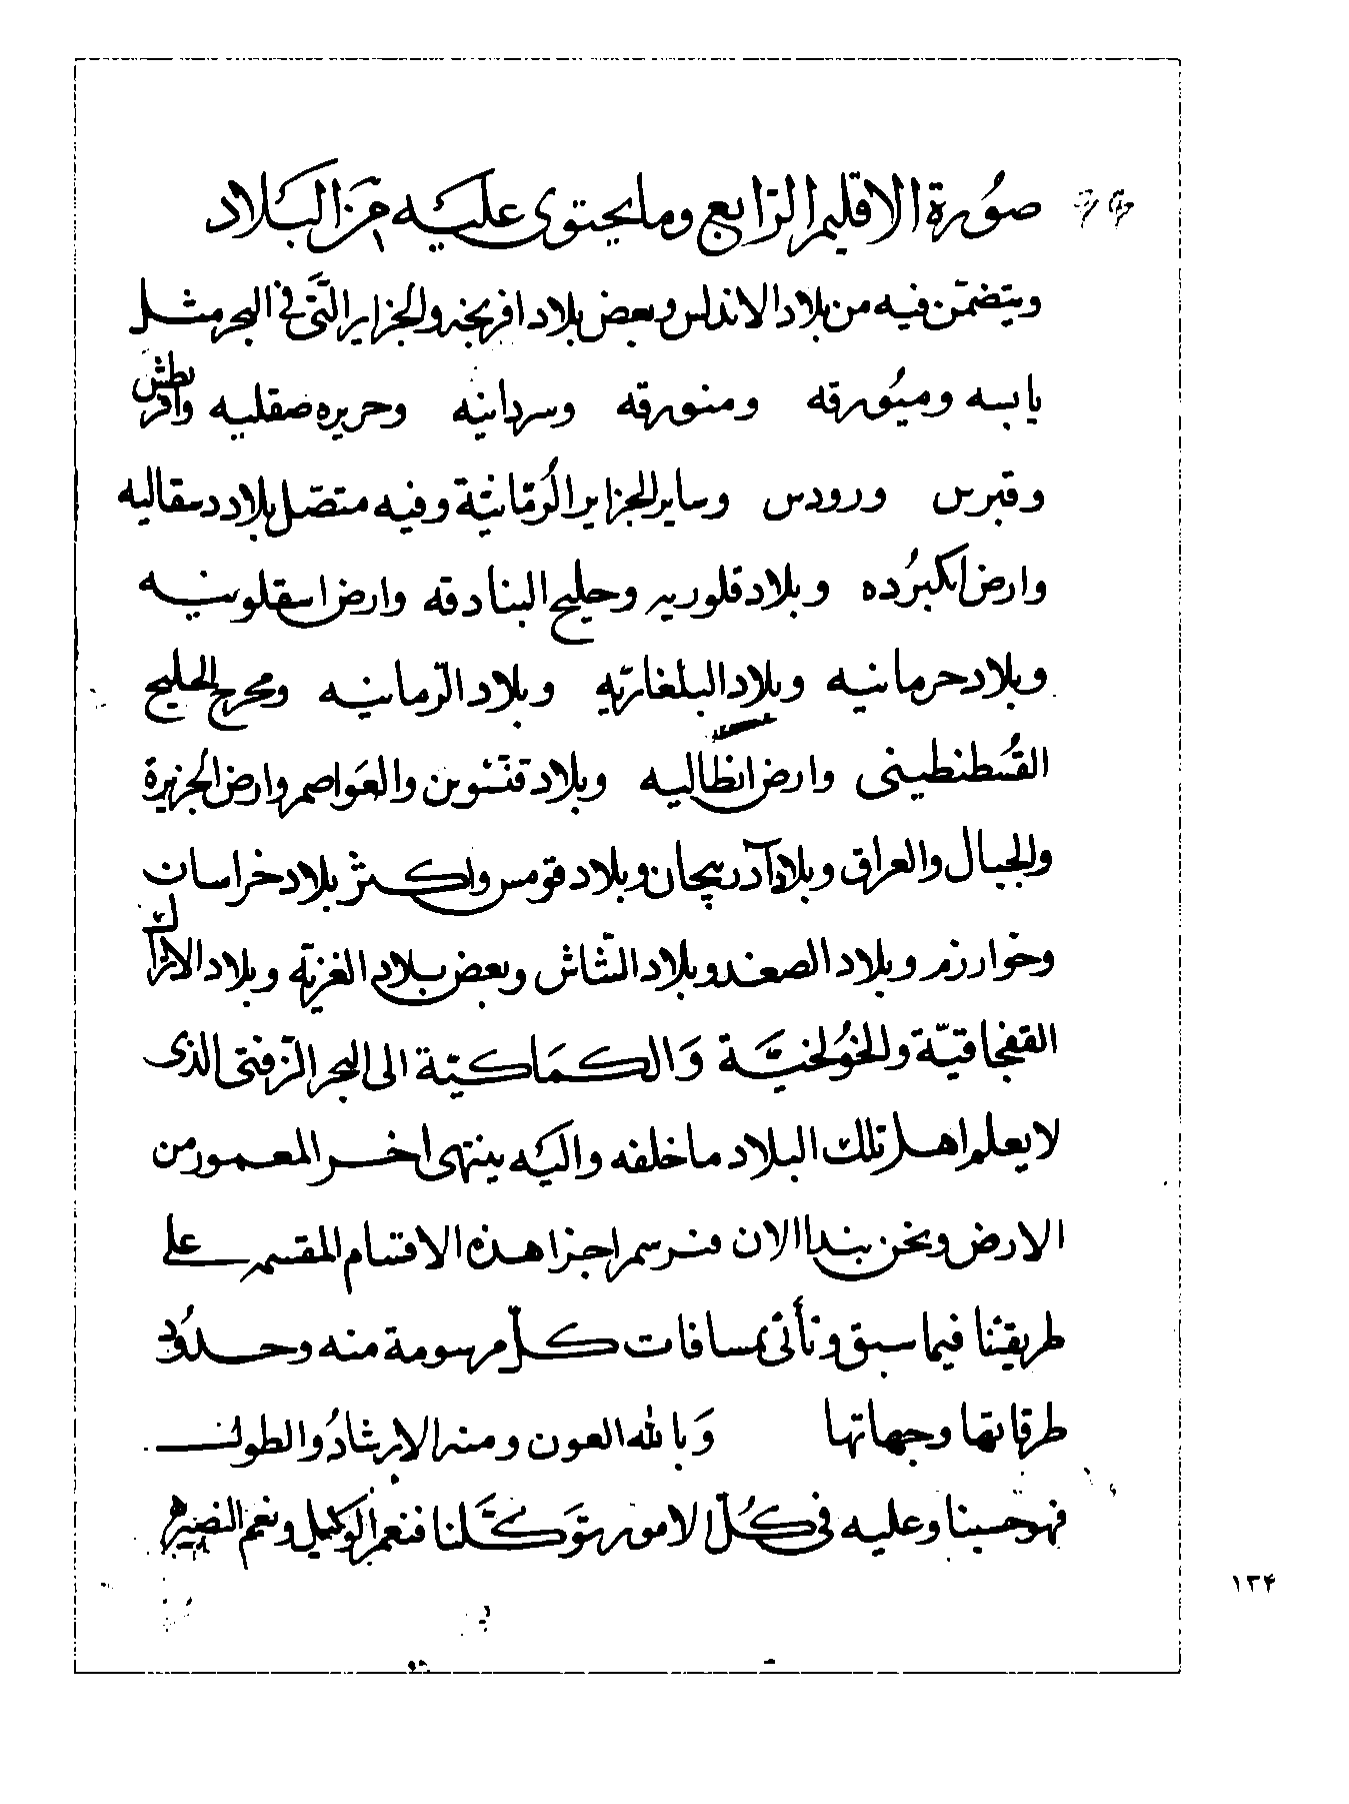 صُورة الاقليم الرّابع وما يحتوى عليَه مِنَ البَلاد
ويتضمّن فيه من بلاد الاندلس وبعض بلاد افرنجنه والجزاير الّتى فى البحر مثل
يابسه وميُورقه ومنورقه وسردانيه وحريره صقليه واقريطش
وقبرس ورودس وساير الجزاير الرُمّانيّة وفيه متصّل بلاد دسقاليه
وارض انكبُرده وبلاد قلوريه وحليج البنادقه وارض اسقلوسيه
وبلاد حرمانيه وبلاد البلغاريّه وبلاد الرّمانيه ومحرج الحليج
القُسطنطينى وارض انطاليه وبلاد قنّسَوين والعَواصم وارض الجزيرة
والجبال والعراق وبلاد آدربيجان وبلاد قومس واكثر بلاد خراسان
وخوارزم وبلاد الصغد وبلاد الشّاش وبعض بلاد الغزيّه وبلاد الاتراك
القفجاقيّة والخوُلخيَّة وَالكمَاكيّة الى البحر الزّفتى الذى
لا يعلم اهل تلك البلاد ما خلفه واليَه ينتهى اخر المعمور من
الارض ونحن نبدا الان فنرسم اجزا هذه الاقسام المقسمه على
طريقتنا فيما سبق ونأتى بمسافات كلّ مرسومة منه وحدُود
طرقاتها وجهاتها وَبالله العون ومنه الارشادُ والطول
فهو حسبنا وعليه فى كُلّ الامور توَكَّلنا فنعم الوكيل ونعم النصير
١٣۴